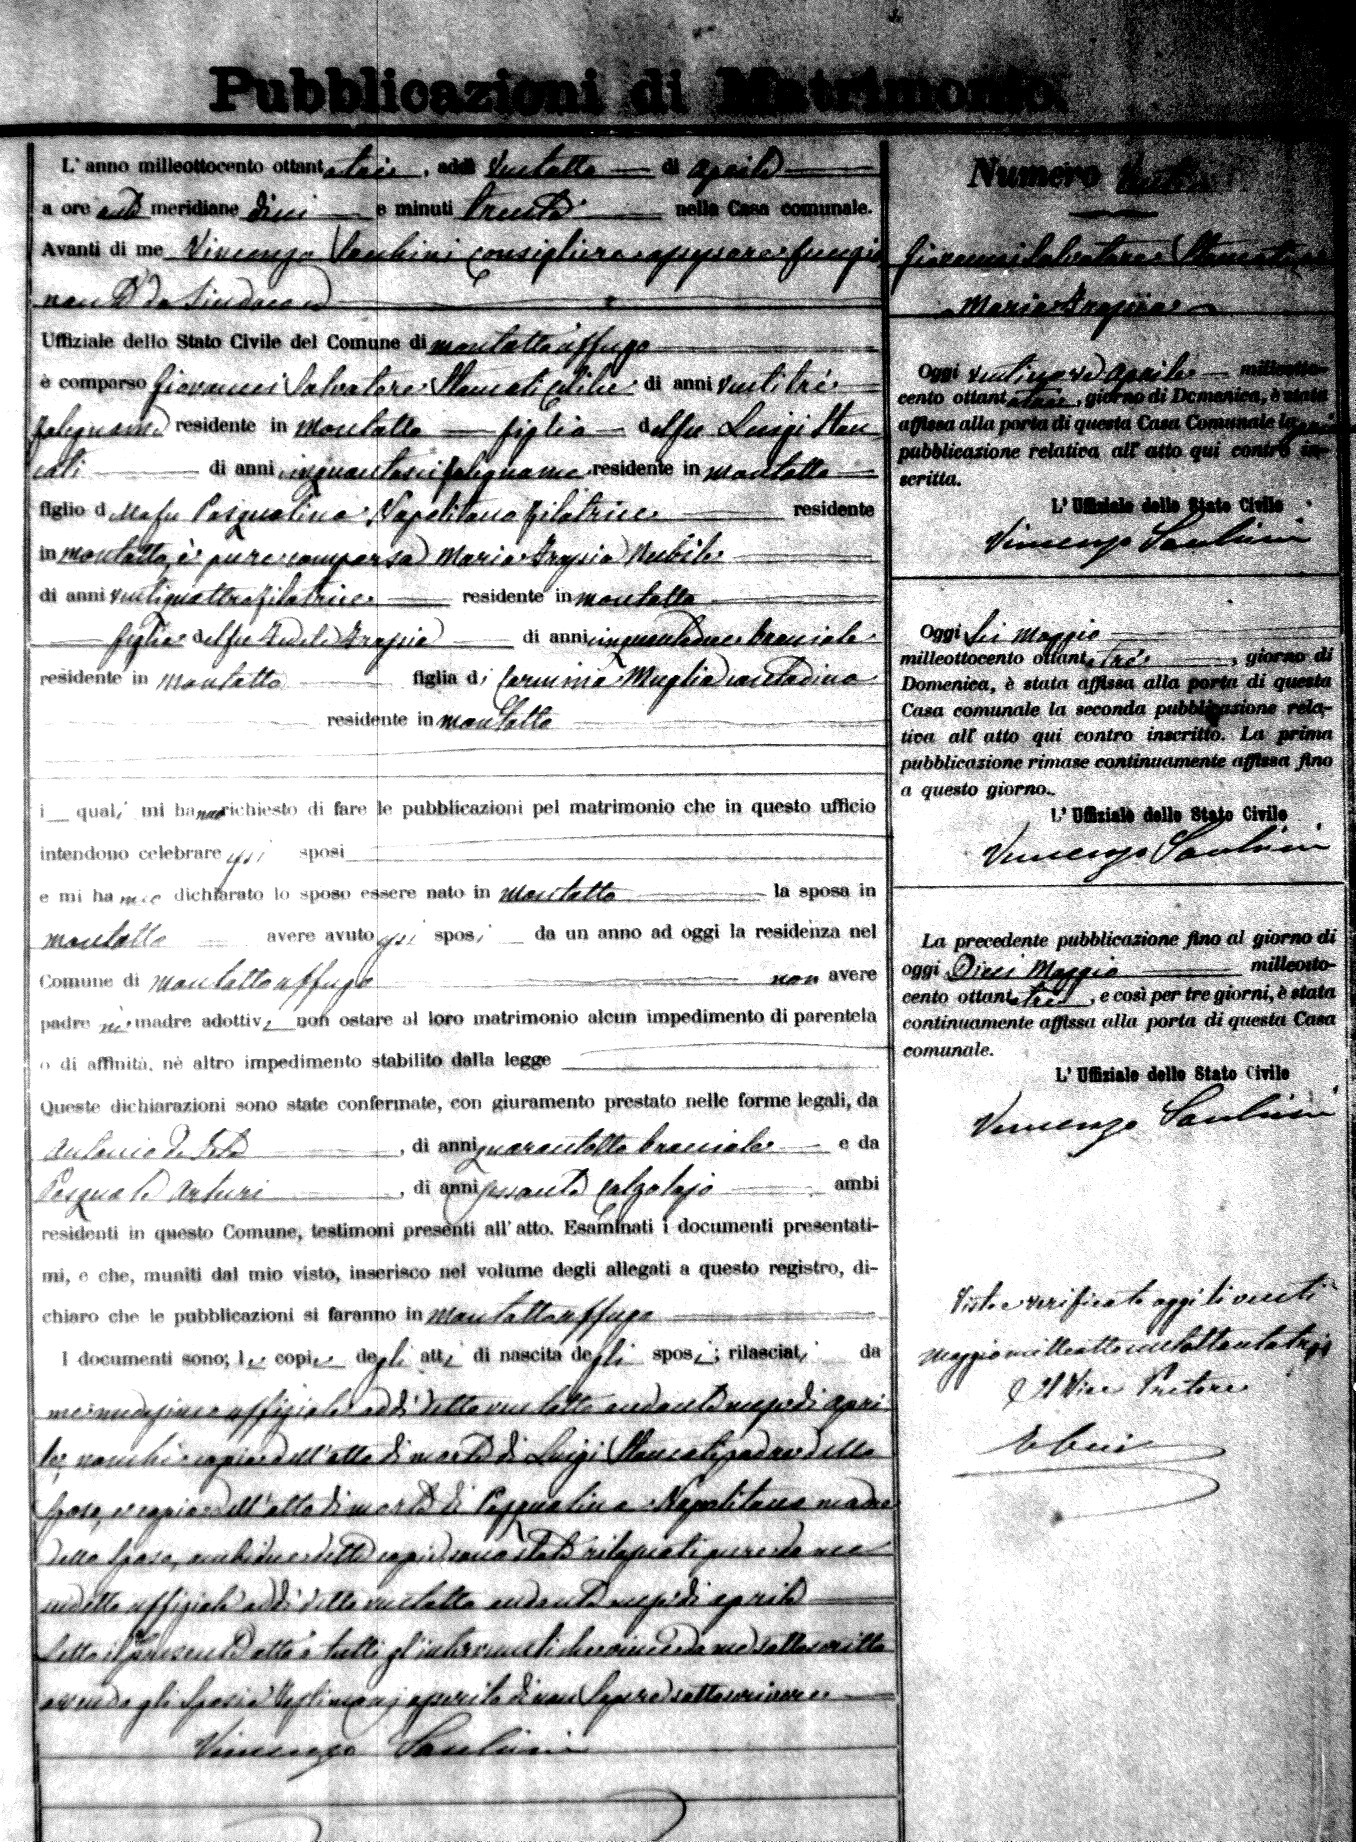 Pubblicazioni di Matrimonio.
L'anno milleottocento ottantatrè, addì ventotto di Aprile
a ore anti meridiane dieci e minuti trenta nella Casa comunale.
Avanti di me Vincenzo consigliere assessore funzio
nante da Sindaco
Uffiziale dello Stato Civile del Comune di Montalto Uffugo
è comparso Giovanni Salvatore Stancati Celibe di anni ventitrè
falegname residente in Montalto figlio del fu Luigi Stan
cati di anni cinquantasei falegname residente in Montalto
figlio della fu Pasqualina Napolitano filatrice residente
in Montalto, è pure comparsa Maria Nubile
di anni ventiquattro filatrice residente in Montalto
figlia del fu Fedele di anni cinquantadue bracciale
residente in Montalto figlia di Carmina Muglia contadina
residente in Montalto
i quali mi hanno richiesto di fare le pubblicazioni pel matrimonio che in questo ufficio
intendono celebrare essi sposi
e mi hanno dichiarato lo sposo essere nato in Montalto la sposa in
Montalto avere avuto essi sposi da un anno ad oggi la residenza nel
Comune di Montalto Uffugo non avere
padre nè madre adottivi non ostare al loro matrimonio alcun impedimento di parentela
o di affinità, nè altro impedimento stabilito dalla legge
Queste dichiarazioni sono state confermate, con giuramento prestato nelle forme legali, da
Antonio de , di anni quarantotto bracciale e da
Pasquale Arturi , di anni sessanta calzolajo ambi
residenti in questo Comune, testimoni presenti all'atto. Esaminati i documenti presentati-
mi, e che, muniti dal mio visto, inserisco nel volume degli allegati a questo registro, di-
chiaro che le pubblicazioni si faranno in Montalto Uffugo
I documenti sono; le copie degli atti di nascita degli sposi; rilasciati da
me medesimo uffiziale addì detto ventotto andante mese di Apri
le, nonchè copia dell'atto di morte di Luigi Stancati padre dello
sposo, e copia dell'atto di morte di Pasqualina Napolitano madre
dello sposo, ambidue dette copie sono state rilasciati pure da me
uffiziale addì detto ventotto andante mese di Aprile
Letto il presente atto a tutti gl'intervenuti viene da me sottoscritto
avendo gli sposi e testimonj asserito di non sapere sottoscrivere
Vincenzo
Numero
Giovanni Salvatore Stancati e
Maria
Oggi ventinove Aprile milleotto-
cento ottantatrè, giorno di Domenica, è stata
affissa alla porta di questa Casa Comunale la
pubblicazione relativa all'atto qui contro in-
scritta.
L'Uffiziale dello Stato Civile
Vincenzo
Oggi sei Maggio
milleottocento ottantatrè, giorno di
Domenica, è stata affissa alla porta di questa
Casa comunale la seconda pubblicazione rela-
tiva all'atto qui contro inscritto. La prima
pubblicazione rimase continuamente affissa fino
a questo giorno.
L'Uffiziale dello Stato Civile
Vincenzo
La precedente pubblicazione fino al giorno di
oggi Dieci Maggio milleotto-
cento ottantatrè, e così per tre giorni, è stata
continuamente affissa alla porta di questa Casa
comunale.
L'Uffiziale dello Stato Civile
Vincenzo
Visto e verificato oggi li venti
Maggio milleottocentottantatrè
Il Vice Pretore